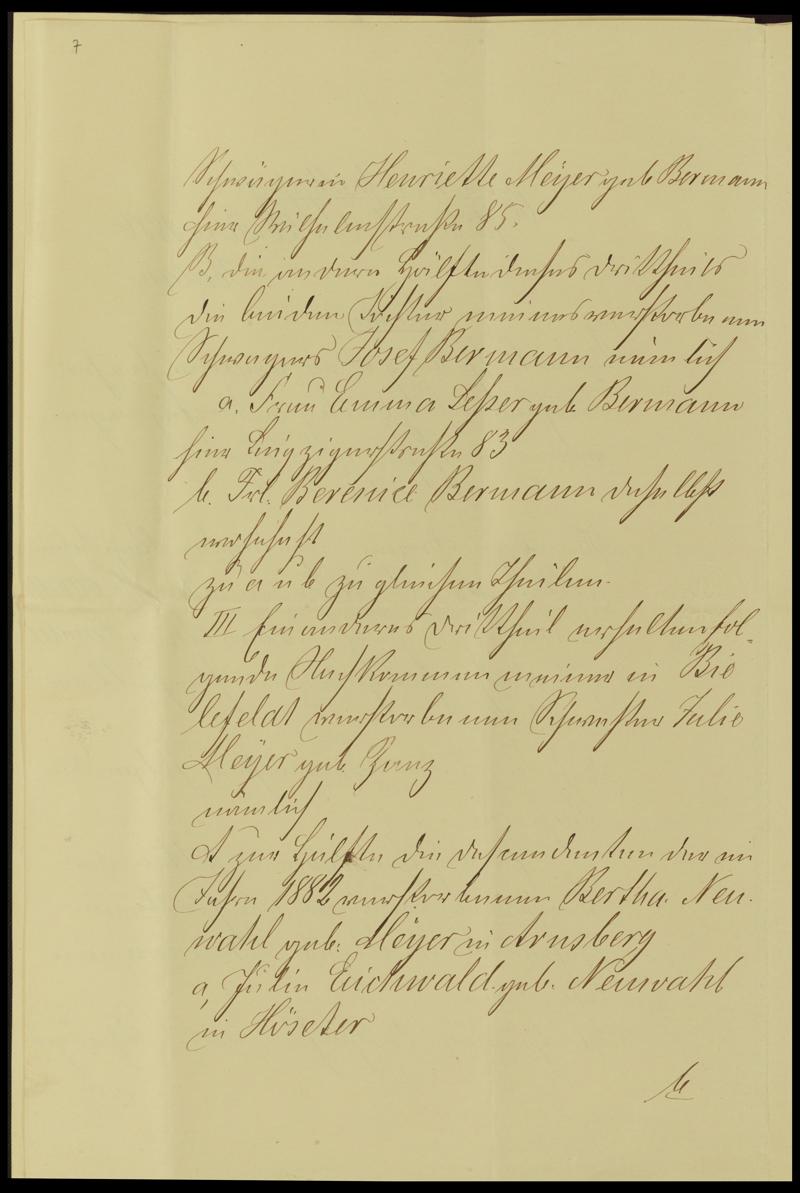 7
Schwägerin Henriette Meijer geb Bermann
hier Wilhelmstraße 85.
B, die andere Hälfte dieses Drittheils
die beiden Töchter meines verstorbenen
Schwagers Josef Bermann nämlich
a. Frau Emma Leßer geb Bermann
hier Leipzigerstraße 83
b. Frl. Berenice Bermann daselbst
wohnhaft
zu a u b zu gleichen Theilen.
III Ein anderes Drittheil erhalten fol-
gende Nachkommen meiner in Bie
lefeldt verstorbenen Schwester Julie
Meijer geb. Ganz
nämlich
A zur Hälfte die Descendenten der im
Jahre 1882 verstorbenen Bertha Neu-
wahl geb: Meijer in Arnsberg
a, Julie Eichwald geb. Neuwahl
in Höxter
b